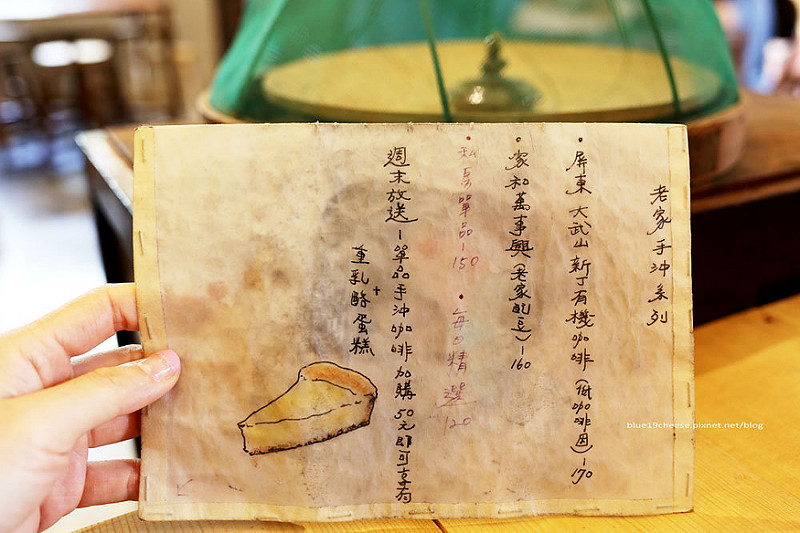 老家手沖系列
•屏東大武山新丁有機咖啡(低咖啡因)-170
•家和萬事興(老家配豆)-160
•私房單品-150
•每日精選 120
週末放送-單品手沖咖啡加購50元即可享有
+
重乳酪蛋糕
blue19cheese.pixnet.net/blog